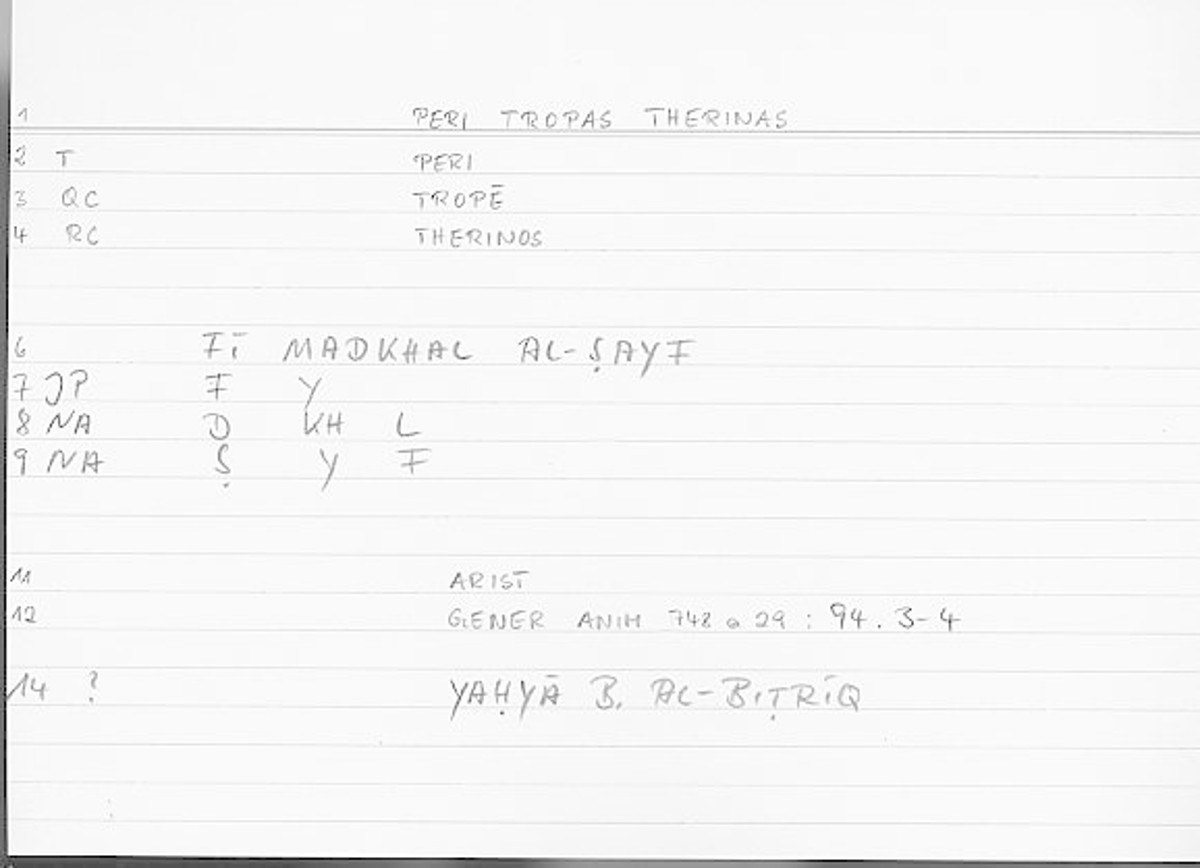 1 PERI TROPAS THERINAS
2 T PERI
3 QC TROPĒ
4 RC THERINOS
6 FĪ MADKHAL AL-ṢAYF
7 JP F Y
8 NA D KH L
9 NA Ṣ Y F
11 ARIST
12 GENER ANIM 748 a 29 : 94. 3-4
14 ? YAḤYĀ B. AL-BIṬRĪQ